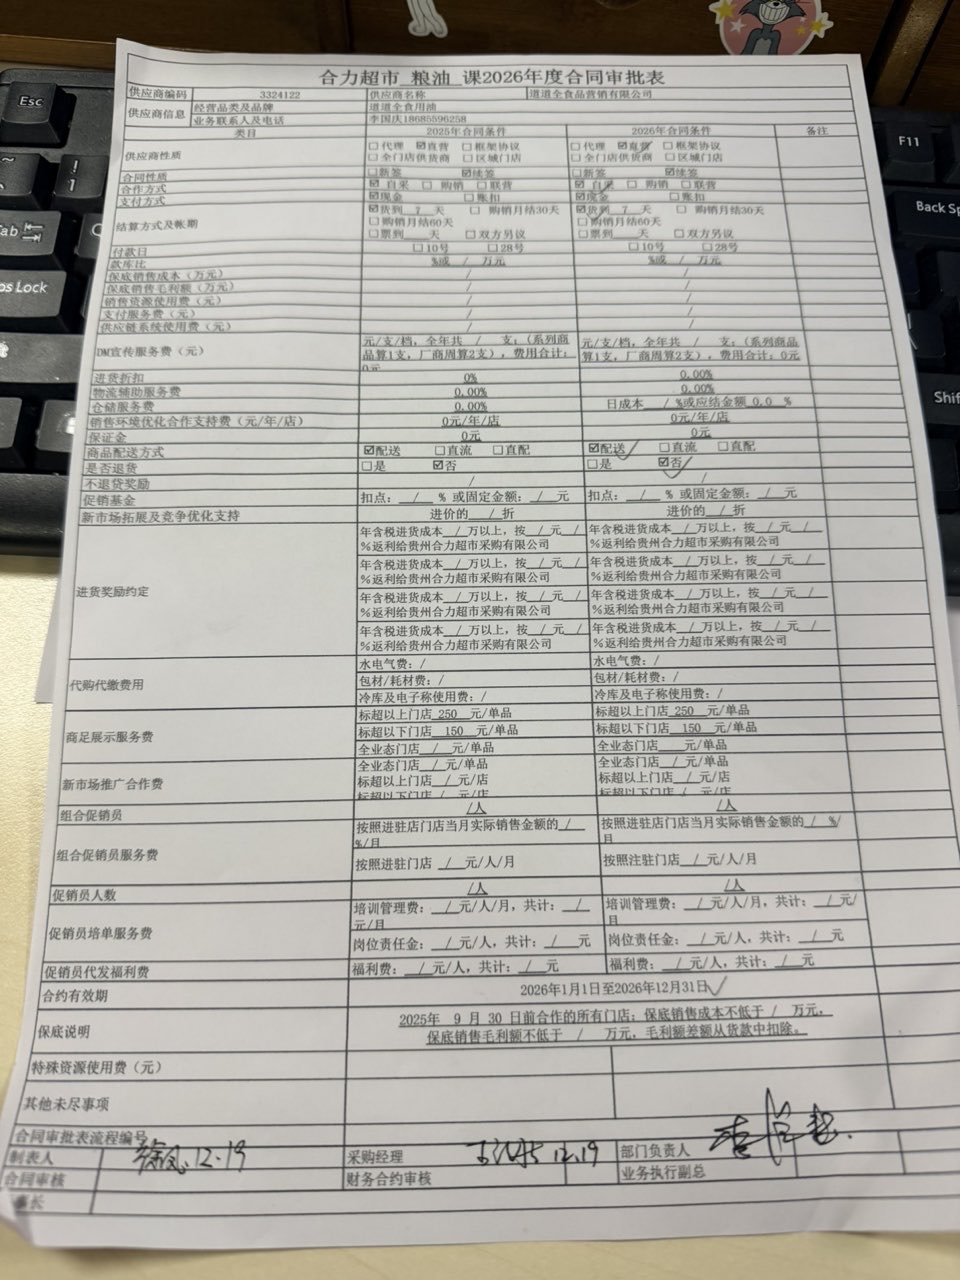 合力超市 粮油 课2026年度合同审批表
供应商编码 3324122 供应商名称 道道全食品营销有限公司
供应商信息 经营品类及品牌 道道全食用油
业务联系人及电话 李国庆18685596258
类目 2025年合同条件 2026年合同条件 备注
供应商性质 ☐代理 ☑直营 ☐框架协议 ☐代理 ☑直营 ☐框架协议
☐全门店供货商 ☐区域门店 ☐全门店供货商 ☐区域门店
合同性质 ☐新签 ☑续签 ☐新签 ☑续签
合作方式 ☑ 自采 ☐ 购销 ☐联营 ☑ 自采 ☐ 购销 ☐联营
支付方式 ☑现金 ☐账扣 ☑现金 ☐账扣
结算方式及帐期 ☑货到 7 天 ☐ 购销月结30天 ☑货到 7 天 ☐ 购销月结30天
☐购销月结60天 ☐购销月结60天
☐票到____天 ☐双方另议 ☐票到____天 ☐双方另议
付款日 ☐10号 ☐28号 ☐10号 ☐28号
款库比 %或 / 万元 %或 / 万元
保底销售成本（万元） / /
保底销售毛利额（万元） / /
销售资源使用费（元） / /
支付服务费（元） / /
供应链系统使用费（元） / /
DM宣传服务费（元） 元/支/档，全年共 / 支；（系列商品算1支，厂商周算2支），费用合计：0元 元/支/档，全年共 / 支；（系列商品算1支，厂商周算2支），费用合计：0元
进货折扣 0% 0.00%
物流辅助服务费 0.00% 0.00%
仓储服务费 0.00% 日成本 / %或应结金额 0.0 %
销售环境优化合作支持费（元/年/店） 0元/年/店 0元/年/店
保证金 0元 0元
商品配送方式 ☑配送 ☐直流 ☐直配 ☑配送 ☐直流 ☐直配
是否退货 ☐是 ☑否 ☐是 ☑否
不退货奖励 / /
促销基金 扣点： / % 或固定金额： / 元 扣点： / % 或固定金额： / 元
新市场拓展及竞争优化支持 进价的 / 折 进价的 / 折
进货奖励约定 年含税进货成本 / 万以上，按 / 元 / 年含税进货成本 / 万以上，按 / 元 /
%返利给贵州合力超市采购有限公司 %返利给贵州合力超市采购有限公司
年含税进货成本 / 万以上，按 / 元 / 年含税进货成本 / 万以上，按 / 元 /
%返利给贵州合力超市采购有限公司 %返利给贵州合力超市采购有限公司
年含税进货成本 / 万以上，按 / 元 / 年含税进货成本 / 万以上，按 / 元 /
%返利给贵州合力超市采购有限公司 %返利给贵州合力超市采购有限公司
年含税进货成本 / 万以上，按 / 元 / 年含税进货成本 / 万以上，按 / 元 /
%返利给贵州合力超市采购有限公司 %返利给贵州合力超市采购有限公司
代购代缴费用 水电气费：/ 水电气费：/
包材/耗材费：/ 包材/耗材费：/
冷库及电子称使用费：/ 冷库及电子称使用费：/
商足展示服务费 标超以上门店 250 元/单品 标超以上门店 250 元/单品
标超以下门店 150 元/单品 标超以下门店 150 元/单品
全业态门店 / 元/单品 全业态门店____元/单品
新市场推广合作费 全业态门店 / 元/单品 全业态门店 / 元/单品
标超以上门店 / 元/店 标超以上门店 / 元/店
标超以下门店 / 元/店 标超以下门店 / 元/店
组合促销员 /人 /人
组合促销员服务费 按照进驻店门店当月实际销售金额的 / %/月 按照进驻店门店当月实际销售金额的 / %/月
按照进驻门店 / 元/人/月 按照注驻门店 / 元/人/月
促销员人数 /人 /人
促销员培单服务费 培训管理费： / 元/人/月，共计： / 元/月 培训管理费： / 元/人/月，共计： / 元/月
岗位责任金： / 元/人，共计： / 元 岗位责任金： / 元/人，共计： / 元
促销员代发福利费 福利费： / 元/人，共计： / 元 福利费： / 元/人，共计： / 元
合约有效期 2026年1月1日至2026年12月31日
保底说明 2025年 9 月 30 日前合作的所有门店；保底销售成本不低于 / 万元，
保底销售毛利额不低于 / 万元，毛利额差额从货款中扣除。
特殊资源使用费（元）
其他未尽事项
合同审批表流程编号
制表人 12.19 采购经理 12.19 部门负责人
合同审核 财务合约审核 业务执行副总
事长
Esc
Tab
F11
Back Sp
Shif
ps Lock